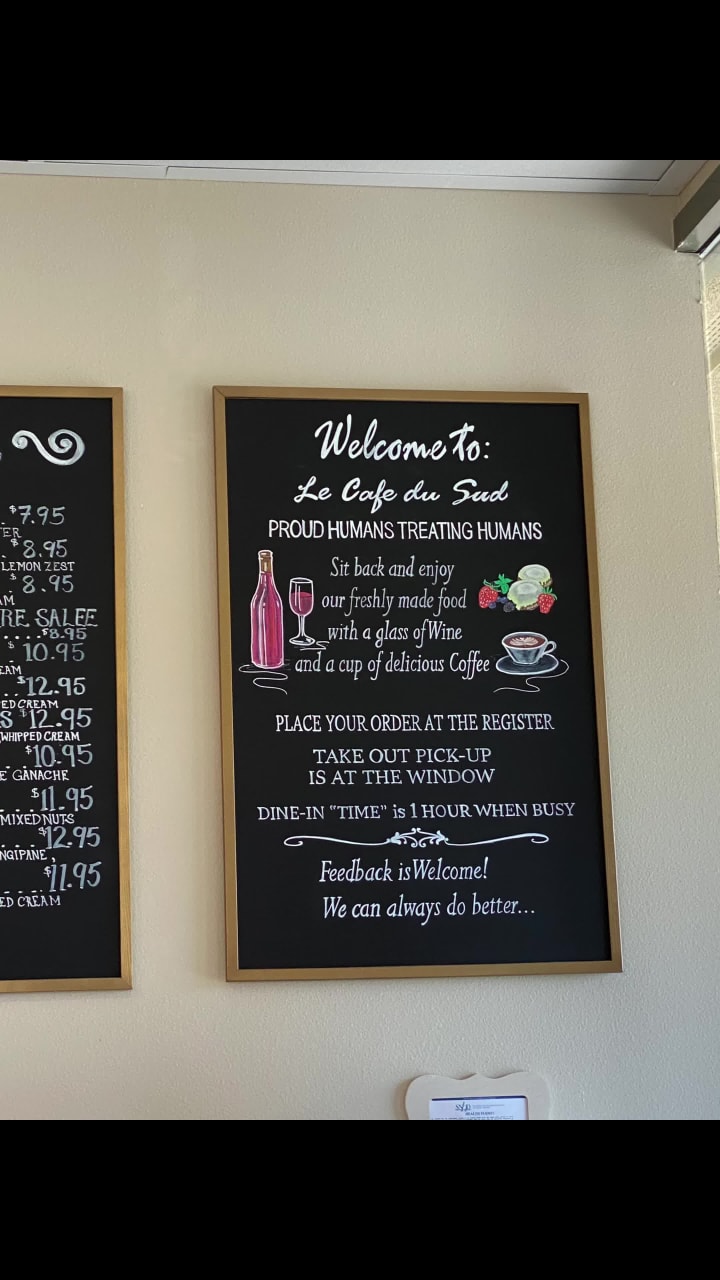 $7.95
ER
$8.95
LEMON ZEST
$8.95
AM
RE SALEE
....$8.95
$10.95
EAM
...$12.95
ED CREAM
S $12.95
WHIPPED CREAM
..$10.95
E GANACHE
....$11.95
MIXED NUTS
....$12.95
NGIPANE,
....$11.95
ED CREAM
Welcome to:
Le Cafe du Sud
PROUD HUMANS TREATING HUMANS
Sit back and enjoy
our freshly made food
with a glass of Wine
and a cup of delicious Coffee
PLACE YOUR ORDER AT THE REGISTER
TAKE OUT PICK-UP
IS AT THE WINDOW
DINE-IN "TIME" is 1 HOUR WHEN BUSY
Feedback is Welcome!
We can always do better...